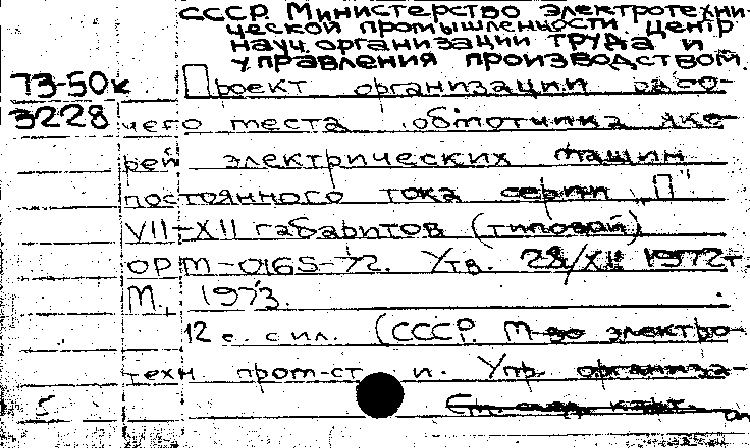 СССР. Министерство электротехни-
ческой промышленности. Центр
науч. организации труда и
управления производством.
73-50к Проект организации рабо-
3228 чего места обмотчика яко-
рей электрических машин
постоянного тока серии „П"
VII-XII габаритов (типовой)
ОРМ-0165-72. Утв. 28/XII 1972г.
М., 1973.
12 с. с ил. (СССР. М-во электро-
техн. пром-сти. Упр. организа-
5